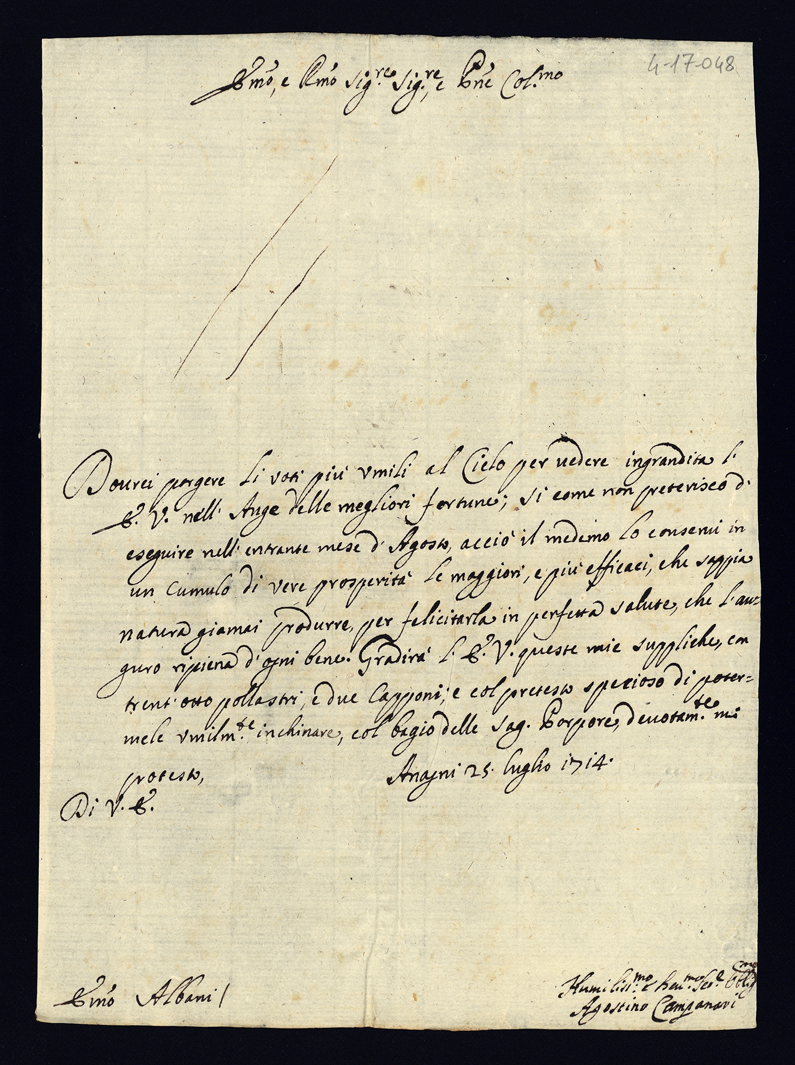 4-17-048
Emo, e Rmo Sig.re Sig.re, e Pne Col.mo
Dourei porgere li voti più umili al Cielo per vedere ingrandita l'
E. V. nell' Auge delle megliori fortune; si come non preterisco d'
eseguire nell' entrante mese d' Agosto, acciò il medemo lo conservi in
un Cumulo di vere prosperità le maggiori, e più efficaci, che sappia
natura giamai produrre, per felicitarla in perfetta salute, che l' au=
guro ripiena d' ogni bene. Gradirà l' E. V. queste mie suppliche, con
trent' otto pollastri, e due Capponi, e col pretesto spezioso di poter=
mele umilm.te inchinare, col bagio delle Sag. Porpore, devotam.te mi
protesto,
Anagni 25. luglio 1714.
Di V. E.
Emo Albani
Humiliss.mo e Dev.mo Ser.e Oblig.mo
Agostino Campanari